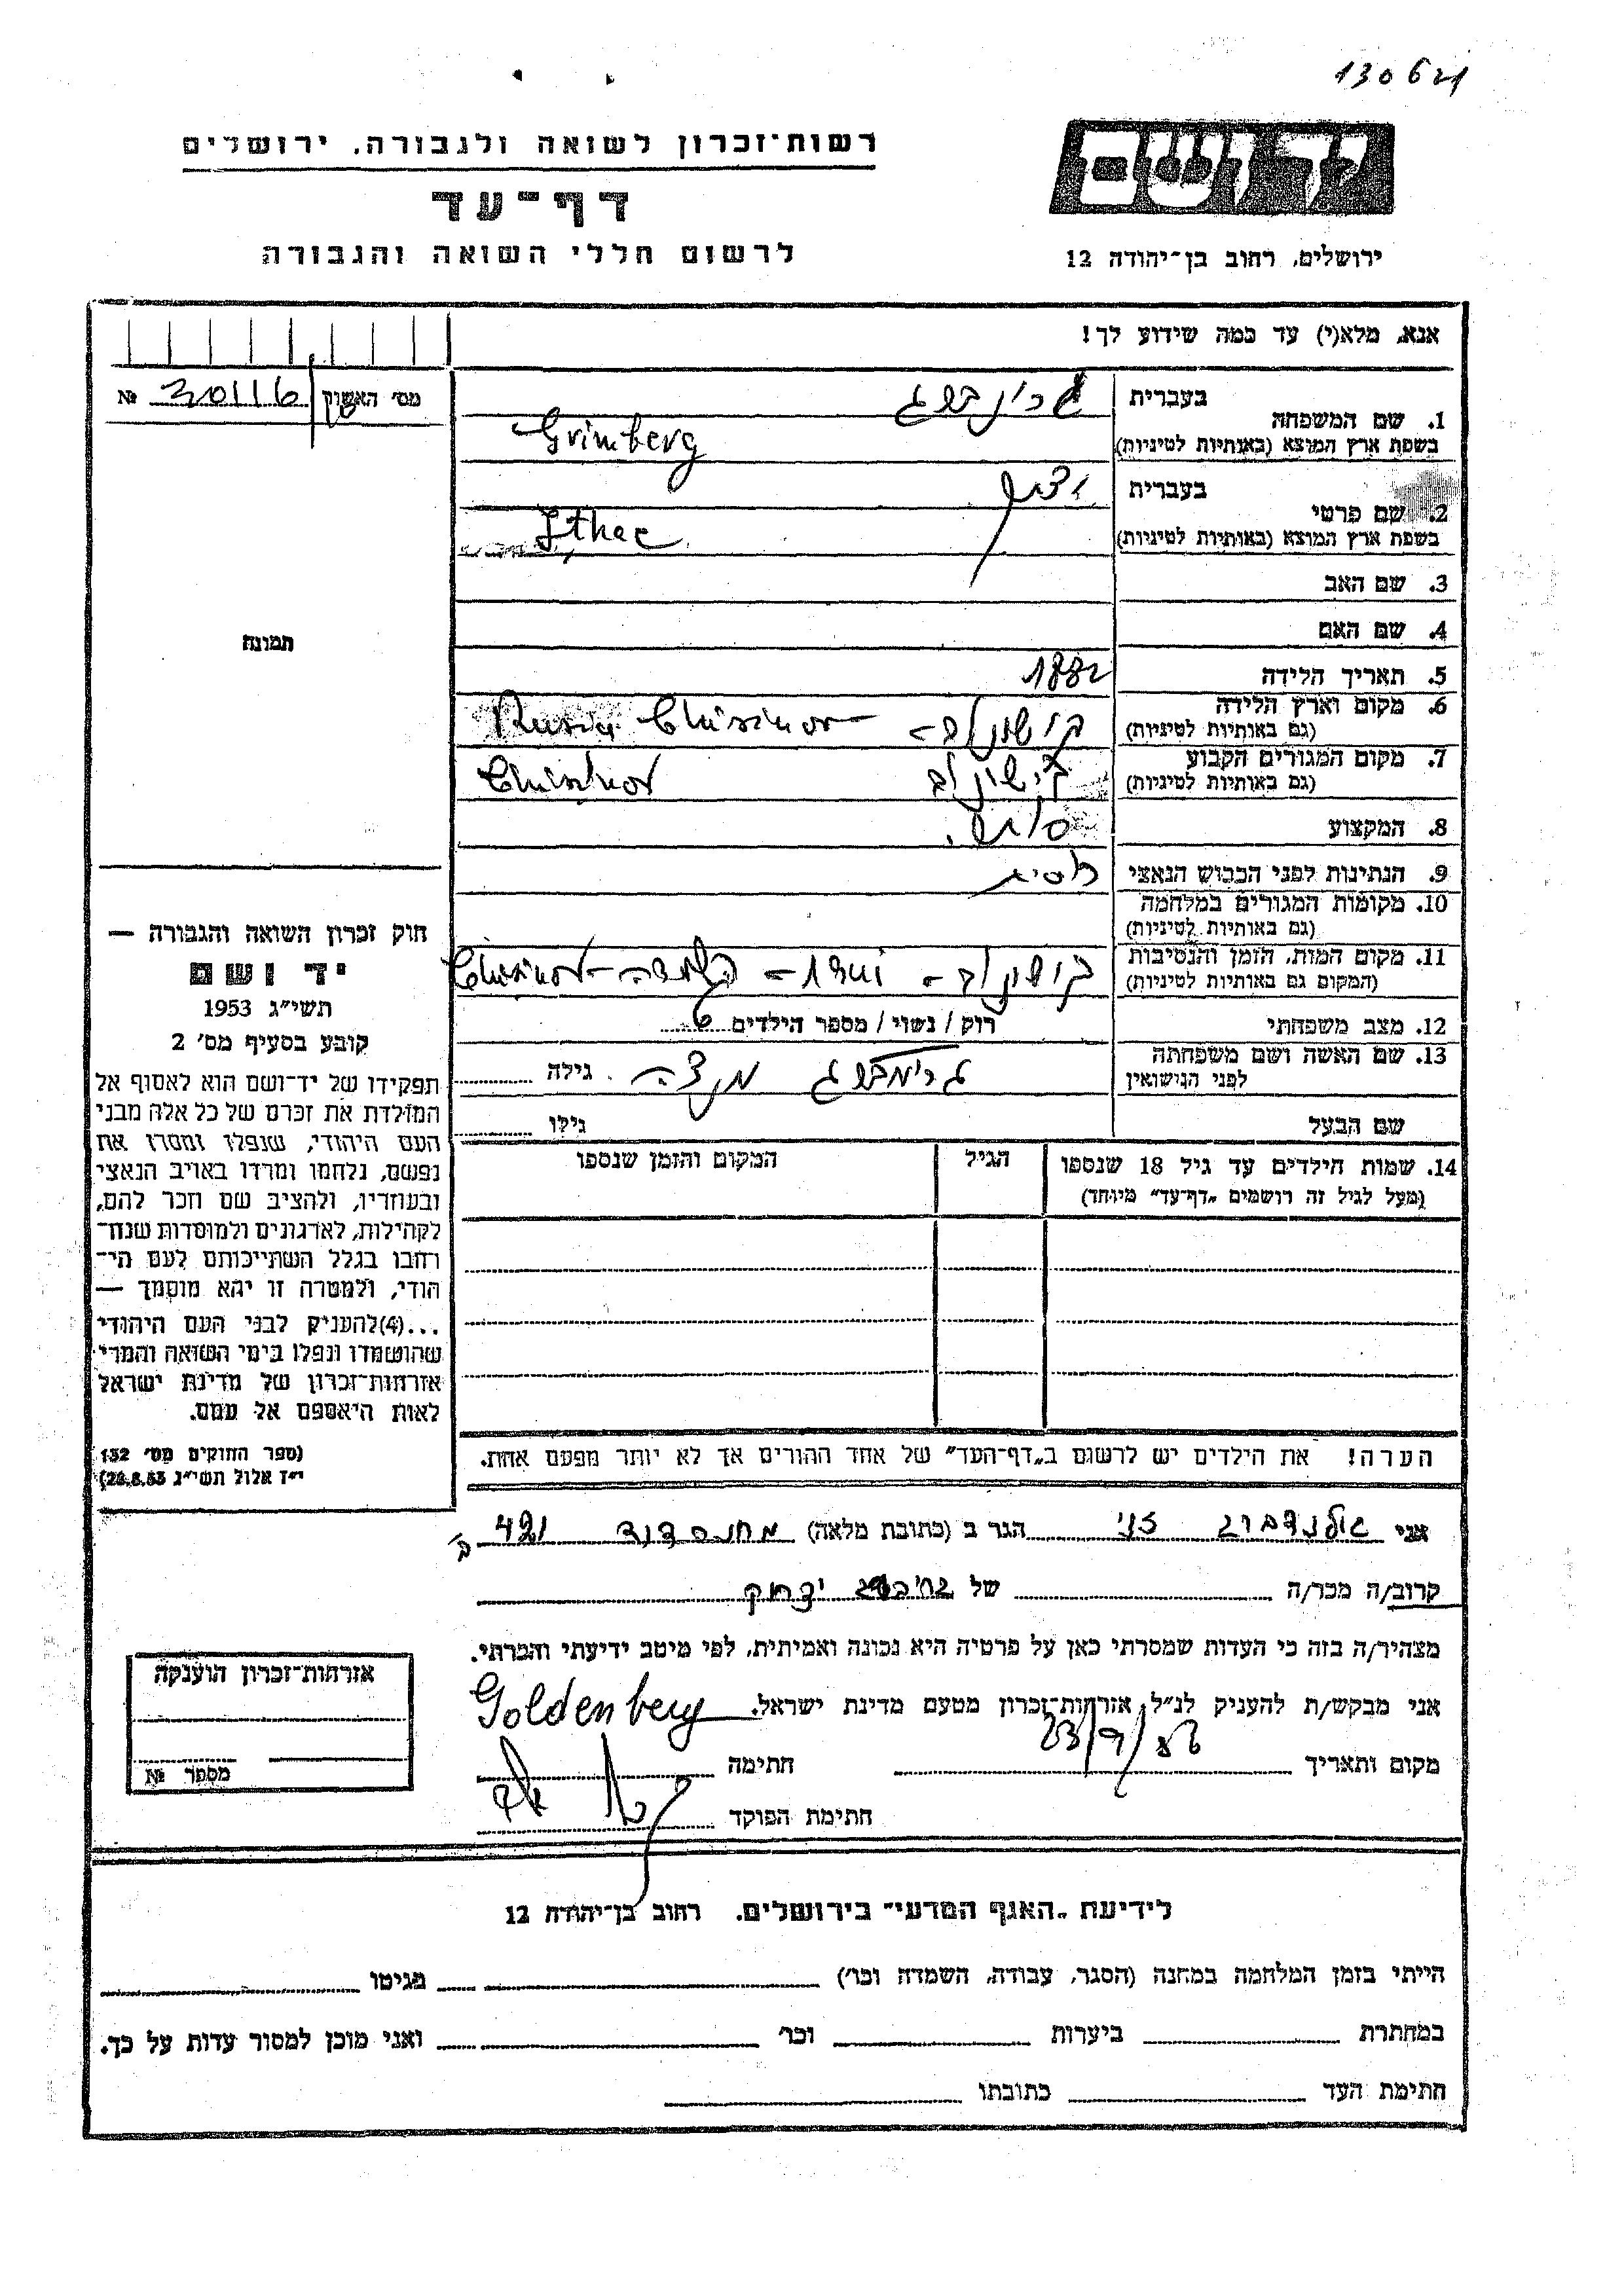 130621
ידושם
רשות־זכרון לשואה ולגבורה, ירושלים
דף־עד
לרשום חללי השואה והגבורה
ירושלים, רחוב בן־יהודה 12
אנא, מלא(י) עד כמה שידוע לך!
מס׳ האשוק № 30116
בעברית
1. שם המשפחה
Grimberg
בשפת ארץ המוצא (באותיות לטיניות)
בעברית יצחק
2. שם פרטי
בשפת ארץ המוצא (באותיות לטיניות)
3. שם האב
4. שם האם
תמונה
5. תאריך הלידה 1882
6. מקום וארץ הלידה
(גם באותיות לטיניות)
7. מקום המגורים הקבוע
(גם באותיות לטיניות)
8. המקצוע סוחר.
9. הנתינות לפני הכבוש הנאצי
10. מקומות המגורים במלחמה
(גם באותיות לטיניות)
11. מקום המות, הזמן והנסיבות
(המקום גם באותיות לטיניות)
12. מצב משפחתי רוק / נשוי / מספר הילדים
13. שם האשה ושם משפחתה
לפני הנישואין
גרימברג גילה
שם הבעל גילו
14. שמות הילדים עד גיל 18 שנספו הגיל המקום והזמן שנספו
(מעל לגיל זה רושמים „דף־עד״ מיוחד)
הערה! את הילדים יש לרשום ב„דף־העד״ של אחד ההורים אך לא יותר מפעם אחת.
חוק זכרון השואה והגבורה —
יד ושם
תשי״ג 1953
קובע בסעיף מס׳ 2
תפקידו של יד־ושם הוא לאסוף אל
המולדת את זכרם של כל אלה מבני
העם היהודי, שנפלו ומסרו את
נפשם, נלחמו ומרדו באויב הנאצי
ובעוזריו, ולהציב שם וזכר להם,
לקהילות, לארגונים ולמוסדות שנח־
רחבו בגלל השתייכותם לעם הי־
הודי, ולמטרה זו יהא מוסמך —
...(4)להעניק לבני העם היהודי
שהושמדו ונפלו בימי השואה והמרי
אזרחות־זכרון של מדינת ישראל
לאות היאספם אל עמם.
(ספר החוקים מס׳ 132
י״ז אלול תשי״ג 28.8.53)
אני הגר ב (כתובת מלאה) 421
קרוב/ה מכר/ה של
מצהיר/ה בזה כי העדות שמסרתי כאן על פרטיה היא נכונה ואמיתית, לפי מיטב ידיעתי והכרתי.
אני מבקש/ת להעניק לנ״ל אזרחות־זכרון מטעם מדינת ישראל.
Goldenberg
מקום ותאריך חתימה
חתימת הפוקד
אזרחות־זכרון הוענקה
מספר №
לידיעת „האגף המדעי״ בירושלים, רחוב בן־יהודה 12
הייתי בזמן המלחמה במחנה (הסגר, עבודה, השמדה וכו׳) בגיטו
במחתרת ביערות וכו׳ ואני מוכן למסור עדות על כך.
חתימת העד כתובתו